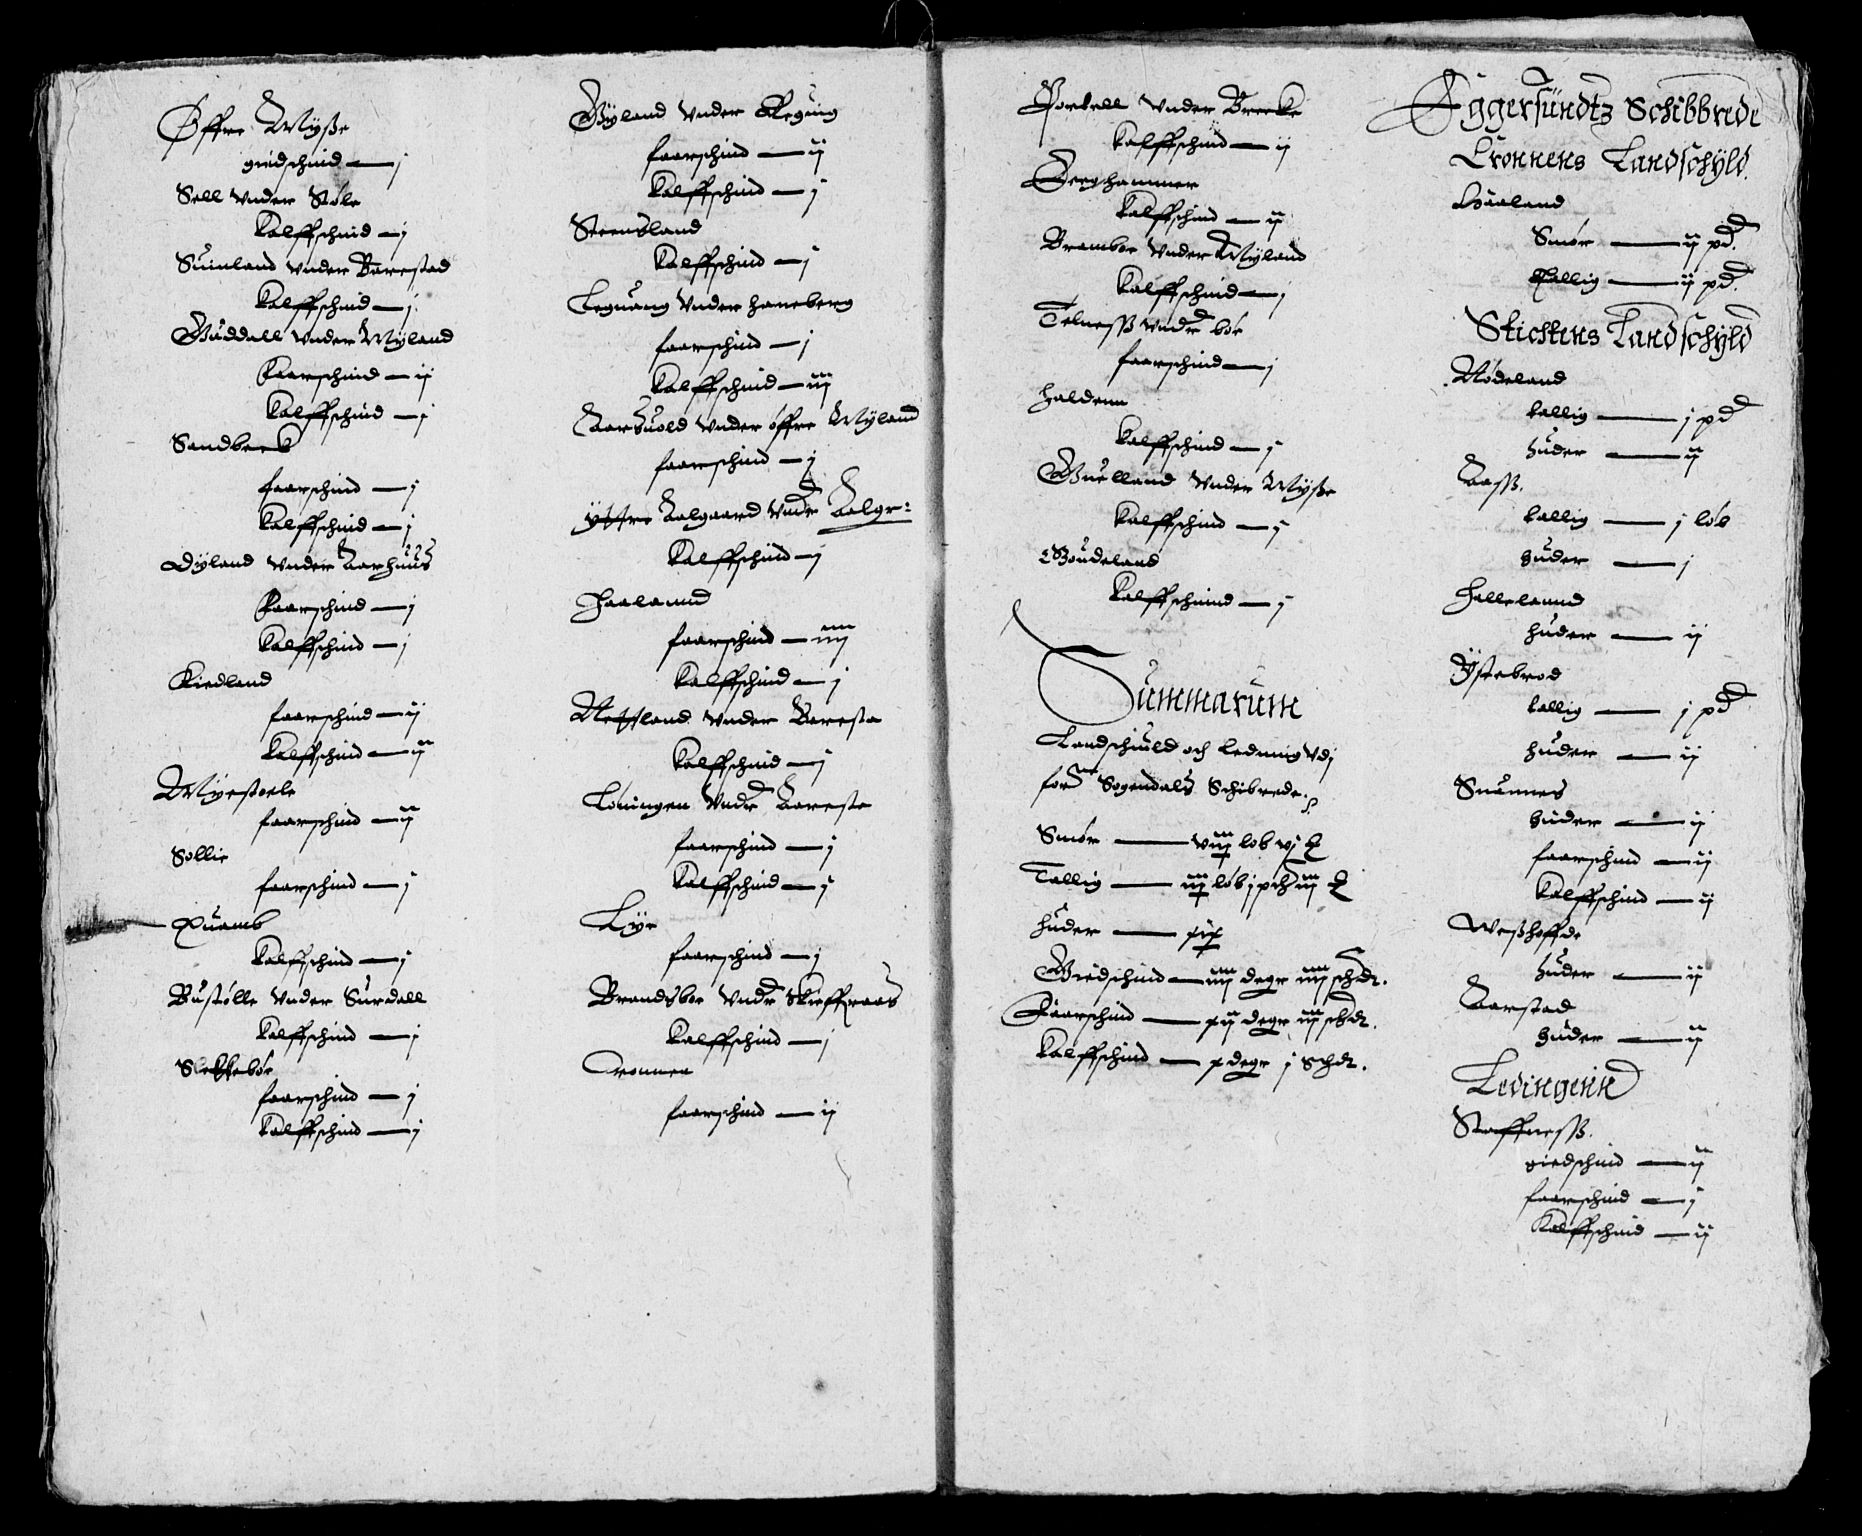 Øffre Myße
giedschind — j
Sell vnder Støle
Kalffschind — j
Suinland vnder Barestad
Kalffschind — j
Guddall vnder Myland
Faarschind — ij
Kalffschind — j
Sandbeek
faarschind — j
Kalffschind — j
Dyland vnder Aarhuus
Faarschind — j
Kalffschind — j
Kiedland
faarschind — ij
Kalffschind — ij
Myestoele
faarschind — ij
Sollie
faarschind — j
Quamb
Kalffschind — j
Bustølle vnder Surdall
Kalffschind — j
Sleckebør
faarschind — j
Kalffschind — j
Gyland vnder Reguig
faarschind — ij
Kalffschind — j
Steensland
Kalffschind — j
Leguang vnder Haneberg
faarschind — j
Kalffschind — iij
Aarsuold vnder øffre Myland
faarschind — j
yttre Aalgaard vndr Aalgr:
Kalffschind — j
Haaland
faarschind — iiij
Kalffschind — j
Nettland vnder Baresta
Kalffschind — j
Løningen vndr Aareste
faarschind — j
Kalffschind — j
Lye
faarschind — j
Brandsboe vndr Skieffraas
Kalffschind — j
Tronuen
faarschind — ij
vnder Brecke
Kalffschind — ij
Berghammer
Kalffschind — ij
Bramboe vnder Myland
Kalffschind — j
Telneß vndr bør
faarschind — j
Haldenn
Kalffschind — j
Guelland vnder Myße
Kalffschind — j
Goudeland
Kalffschind — j
Summarum
Landschiuld och leding vdj
for:ne Sogendals Schibrede.
Smør — viij løb vj
Tallig — iij løb j pd iij
Huder — xix
Giedschind — iiij degr iiij schd.
Faarschind — xij degr iij schd.
Kalffschind — x degr j schd.
Eggersundtz Schibbrede
Cronnens Landschyld.
Haaland
Smør — ij pd.
Tallig — ij pd.
Stichtens Landschyld
Nodeland
tallig — j pd
huder — ij
Aaß.
tallig — j løb
huder — j
Hellelannd
huder — ij
Ystebrod
tallig — j pd
huder — ij
Snannes
huder — ij
faarschind — ij
Kalffschind — ij
Weßhoffde
huder — ij
Aarstad
huder — ij
Ledingenn
Staffneß.
giedschind — ij
faarschind — j
Kalffschind — ij